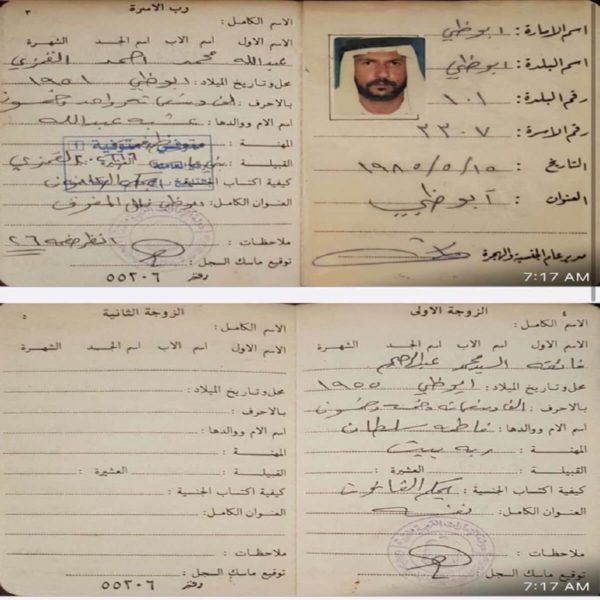 اسم الامارة : ابوظبي
اسم البلدة : ابوظبي
رقم البلدة : ١٠١
رقم الاسرة : ٢٣٠٧
التاريخ : ١٩٨٥/٥/١٥
العنوان : أبوظبي
مدير عام الجنسية والهجرة
7:17 AM
٣
رب الاسرة
الاسم الكامل :
الاسم الاول اسم الاب اسم الجد الشهرة
عبدالله محمد احمد القمزي
محل وتاريخ الميلاد : ابوظبي ١٩٥١
بالاحرف : الف وتسعمائة واحد وخمسون
اسم الام ووالدها : عبدالله
المهنة :
متوفى / متوفية
القبيلة : القمزي
كيفية اكتساب الجنسية : بحكم القانون
العنوان الكامل : ابوظبي
ملاحظات : انظر صفحة ٢٦
توقيع ماسك السجل :
دفتر ٥٥٢٠٦
٤
الزوجة الاولى
الاسم الكامل :
الاسم الاول اسم الاب اسم الجد الشهرة
السيد محمد عبدالرحيم
محل وتاريخ الميلاد : ابوظبي ١٩٥٥
بالاحرف : الف وتسعمائة وخمسة وخمسون
اسم الام ووالدها : فاطمة سلطان
المهنة : ربة بيت
القبيلة : العشيرة :
كيفية اكتساب الجنسية : بحكم القانون
العنوان الكامل : نفسه
ملاحظات :
توقيع ماسك السجل :
7:17 AM
٥
الزوجة الثانية
الاسم الكامل :
الاسم الاول اسم الاب اسم الجد الشهرة
محل وتاريخ الميلاد :
بالاحرف :
اسم الام ووالدها :
المهنة :
القبيلة : العشيرة :
كيفية اكتساب الجنسية :
العنوان الكامل :
ملاحظات :
توقيع ماسك السجل :
دفتر ٥٥٢٠٦